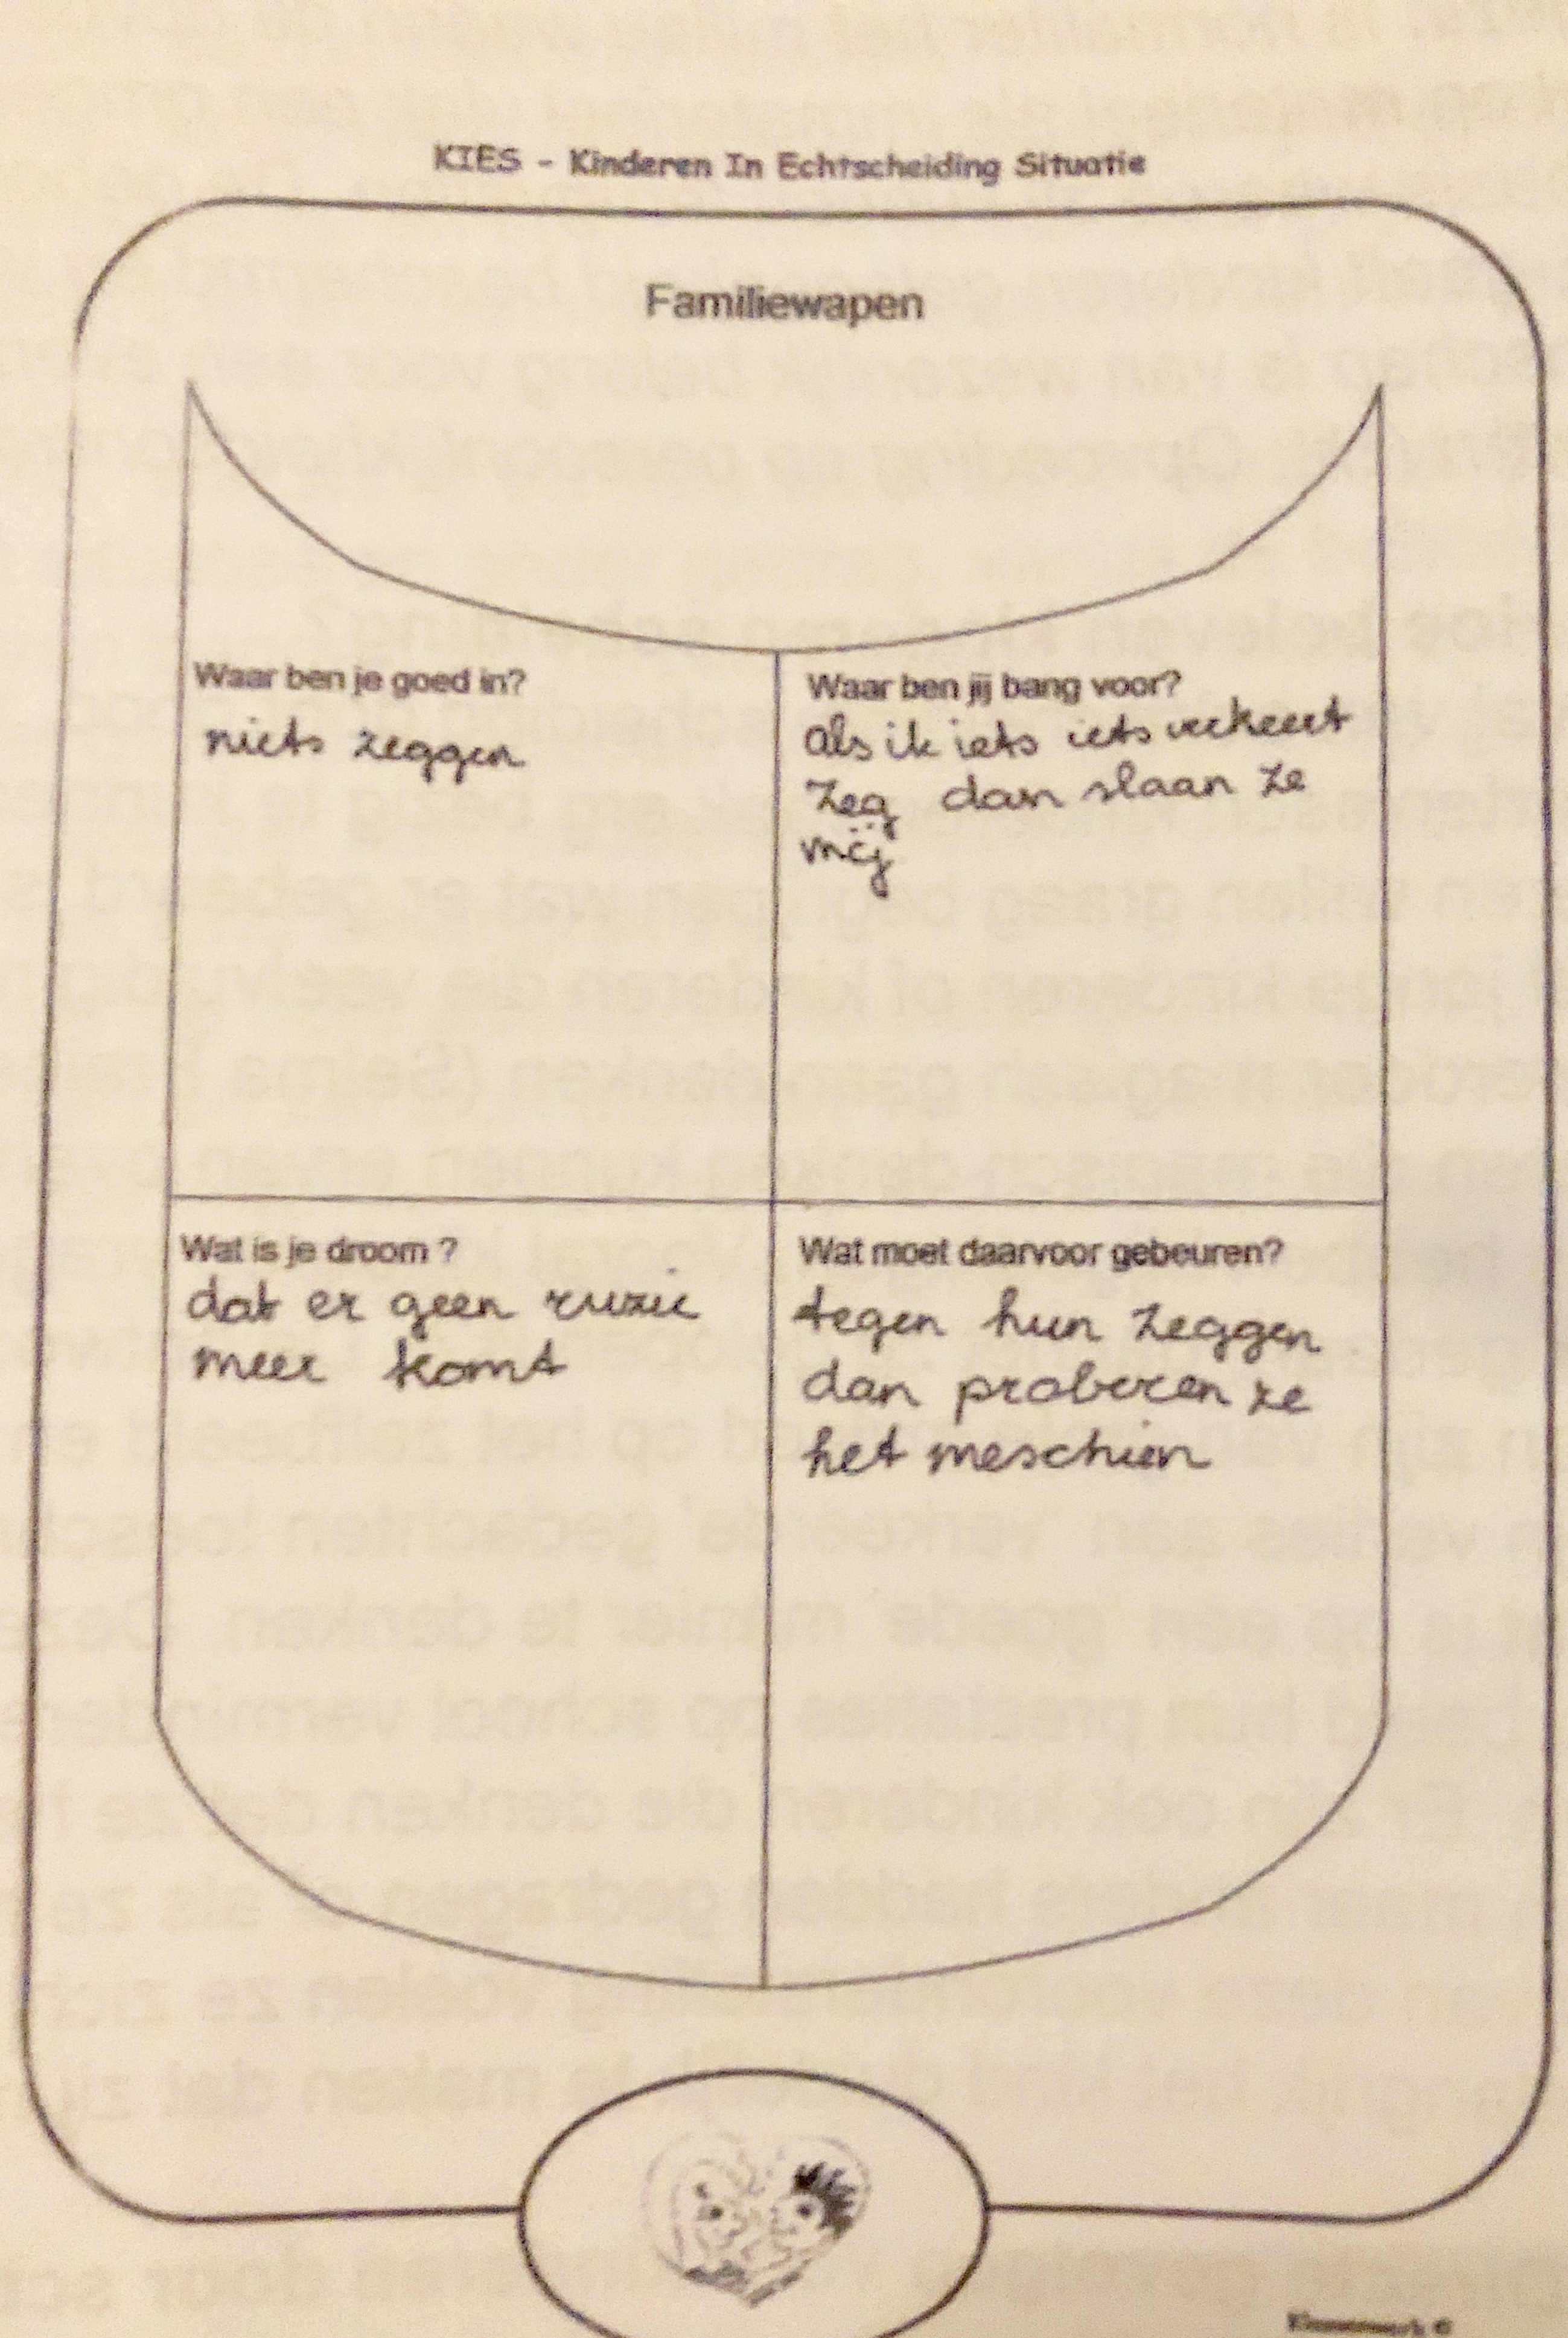 KIES - Kinderen In Echtscheiding Situatie
Familiewapen
Waar ben je goed in?
niets zeggen
Waar ben jij bang voor?
als ik iets iets verkeert
zeg dan slaan ze
mij
Wat is je droom ?
dat er geen ruzie
meer komt
Wat moet daarvoor gebeuren?
tegen hun zeggen
dan proberen ze
het meschien